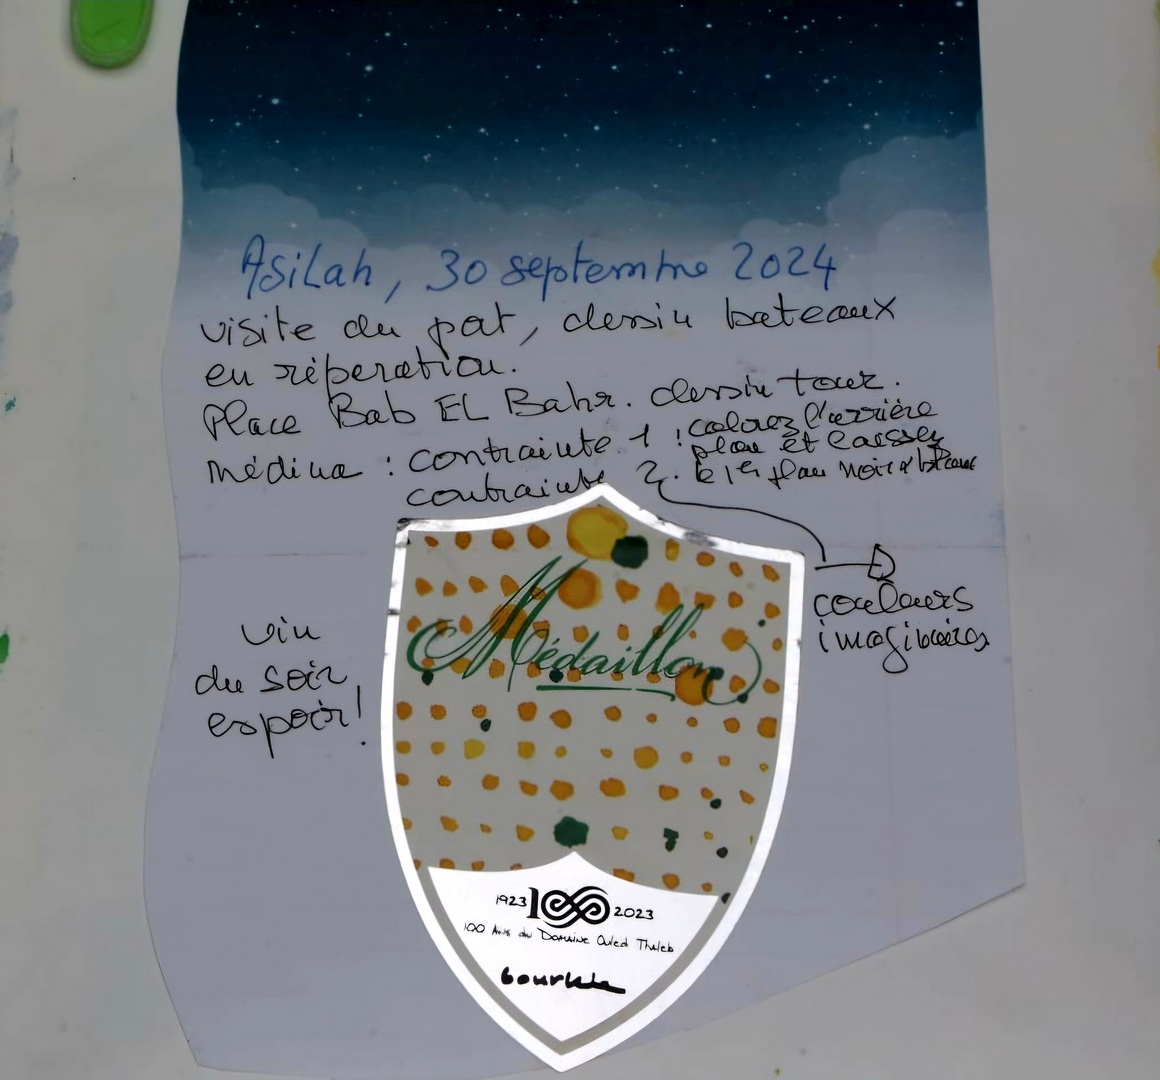 Asilah, 30 septembre 2024
visite du port, dessin bateaux
en réparation.
Place Bab EL Bahr. dessin tour.
médina : contrainte 1 : colorez l'arrière
plan et laissez
le 1er plan noir et blanc
contrainte 2.
couleurs
imaginaires
vin
du soir
espoir!
Médaillon
1923 100 2023
100 Ans du Domaine Ouled Thaleb